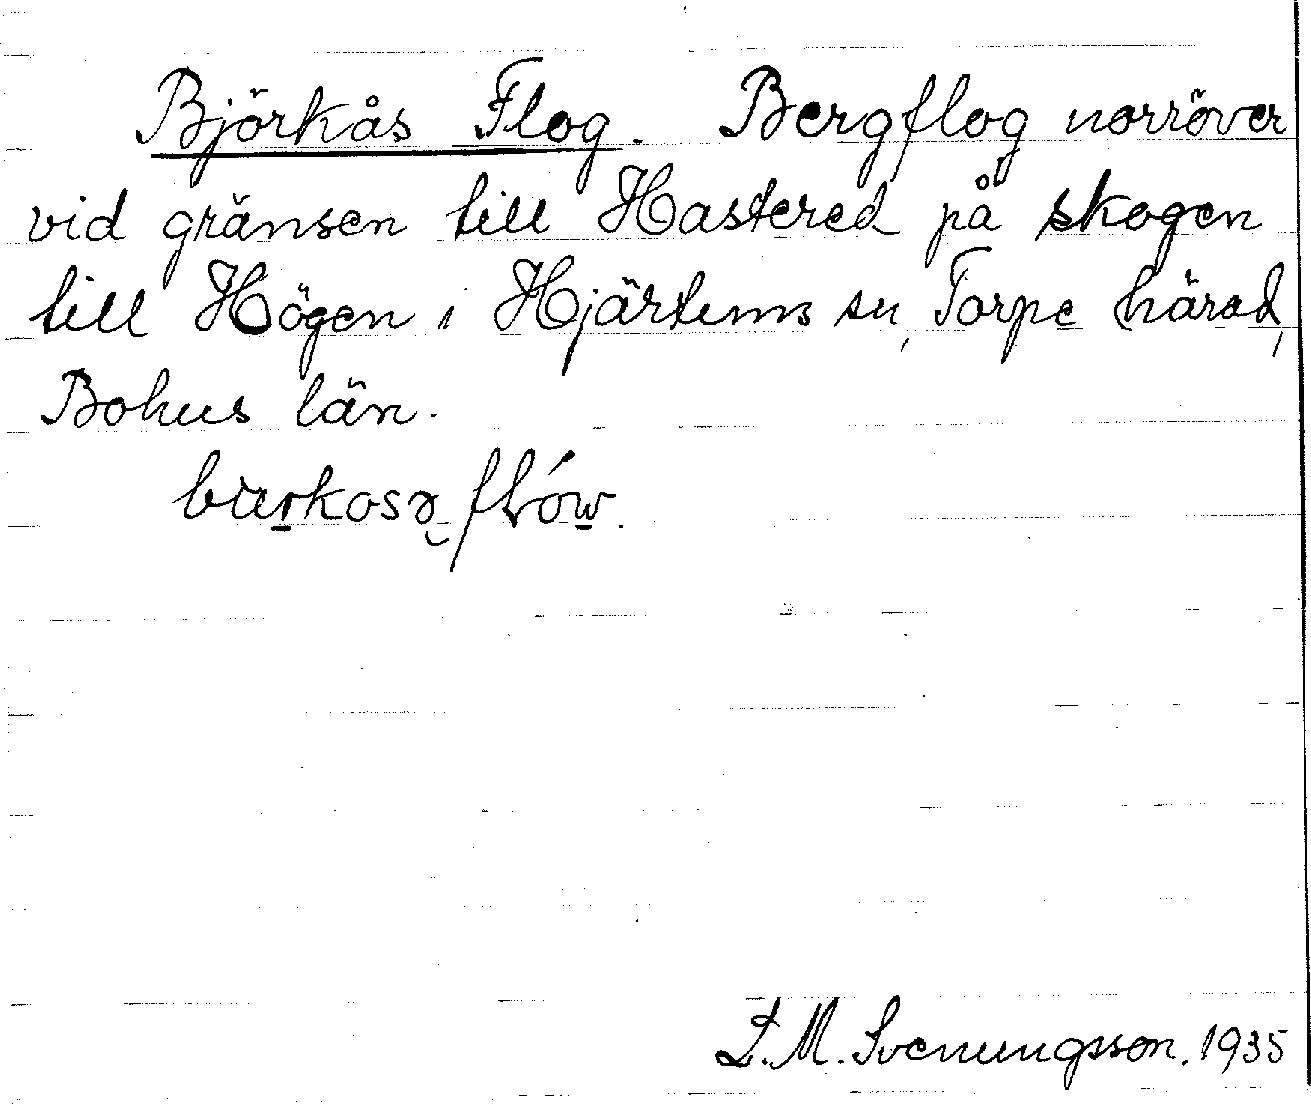 Björkås Flog. Bergflog norröver
vid gränsen till Hastered på skogen
till Högen i Hjärtums sn, Torpe härad,
Bohus län.
L.M. Svenungsson. 1935